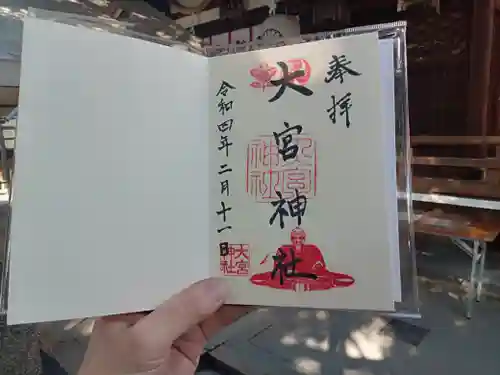 奉拝
大宮神社
大宮
神社
令和四年二月十一日
大宮
神社